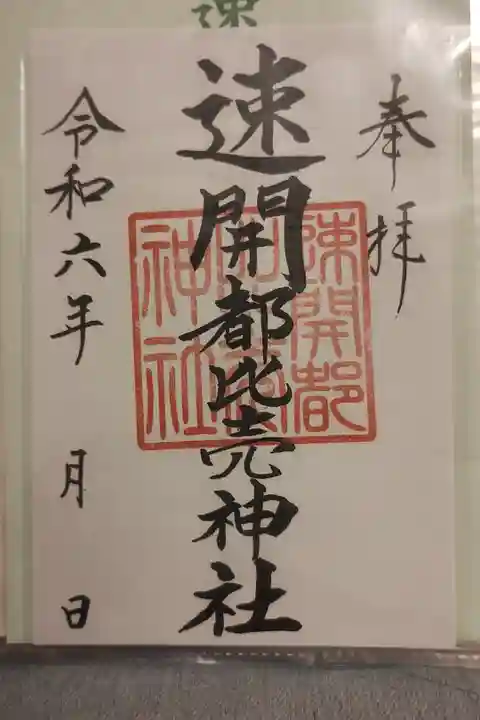 奉拝
速開都比売神社
速開都
神社
令和六年 月 日
速